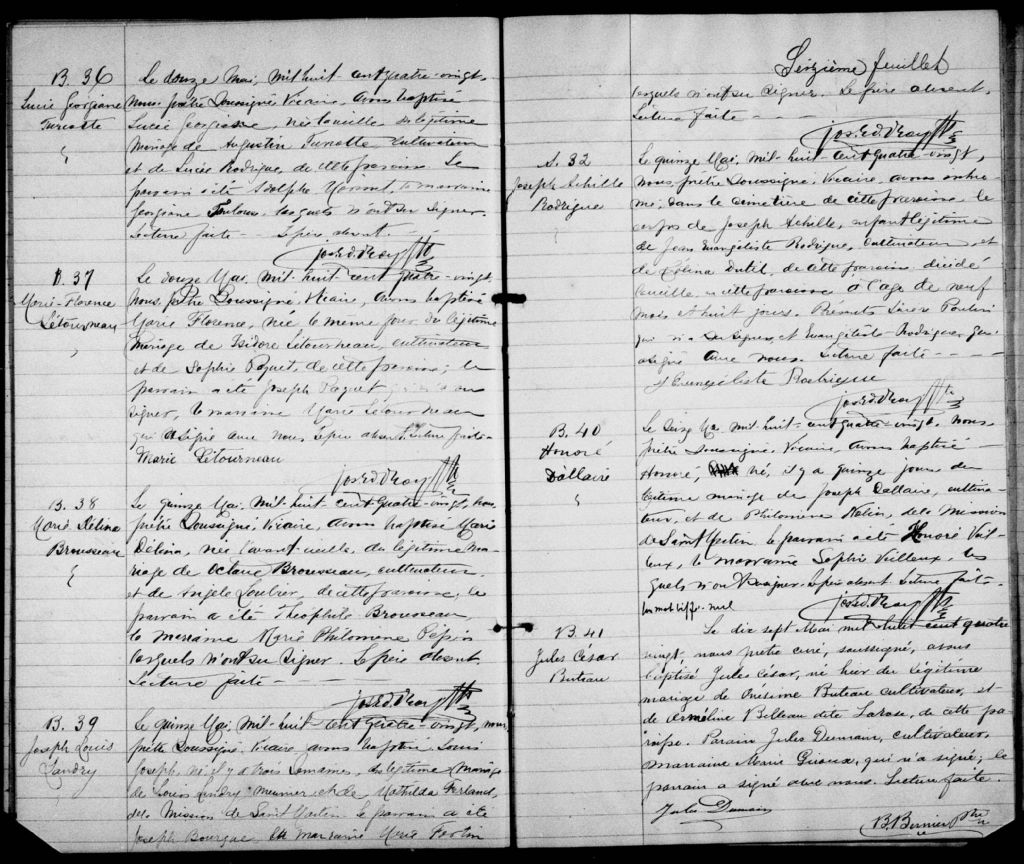 B. 36
Lucie Georgiane
Turcotte
Le douze Mai, mil huit cent quatre-vingt,
nous prêtre soussigné Vicaire, avons baptisé
Lucie Georgiane, née la veille du légitime
mariage de Augustin Turcotte cultivateur
et de Lucie Rodrigue, de cette paroisse. Le
parrain a été Adolphe la marraine
Georgiane lesquels n'ont su signer.
Lecture faite. Le père absent.
B. 37
Marie-Florence
Létourneau
Le douze Mai, mil-huit-cent quatre-vingt,
nous, prêtre soussigné, Vicaire, avons baptisé
Marie Florence, née le même jour du légitime
mariage de Isidore Létourneau, cultivateur
et de Sophie Paquet, de cette paroisse; le
parrain a été Joseph Paquet su
signer, la marraine Marie Létourneau
qui a signé avec nous. Le père absent. Lecture faite.
Marie Létourneau
B. 38
Marie Délina
Brousseau
Le quinze Mai, mil-huit-cent quatre-vingt, nous,
prêtre soussigné, Vicaire, avons baptisé Marie
Délina, née l'avant-veille, du légitime ma-
riage de Octave Brousseau, cultivateur,
et de Angèle Loubier, de cette paroisse; le
parrain a été Théophile Brousseau
la marraine Marie Philomène Pépin
lesquels n'ont su signer. Le père absent.
Lecture faite
B. 39
Joseph Louis
Landry
Le quinze Mai, mil-huit-cent quatre-vingt, nous
prêtre soussigné, Vicaire, avons baptisé Louis
Joseph, né il y a trois semaines, du légitime mariage
de Louis Landry meunier et de Mathilda Ferland,
de la Mission de Saint Martin. le parrain a été
Joseph Bourque, la marraine Marie
Seizième feuillet
lesquels n'ont su signer. Le père absent.
Lecture faite
S. 32
Joseph Achille
Rodrigue
Le quinze Mai, mil-huit-cent quatre-vingt,
nous, prêtre soussigné, Vicaire, avons inhu-
mé, dans le cimetière de cette paroisse le
corps de Joseph Achille, enfant légitime
de Jean Evangéliste Rodrigue, cultivateur, et
de Dutil, de cette paroisse, décédé
la veille, en cette paroisse à l'age de neuf
mois et huit jours. Présents Poulin
qui n'a su signer, et Evangéliste Rodrigue, qui
a signé avec nous. Lecture faite
Evangéliste Rodrigue
B. 40
Honoré
Dallaire
Le seize Mai, mil-huit-cent quatre-vingt, nous,
prêtre soussigné, Vicaire, avons baptisé
Honoré, né, il y a quinze jours du
légitime mariage de Joseph Dallaire, cultiva-
teur, et de Philomène de la Mission
de Saint Martin. le parrain a été Honoré Veil-
leux, la marraine Sophie Veilleux, les-
quels n'ont su signer. Le père absent. Lecture faite.
Un mot biffé nul
B. 41
Jules César
Buteau
Le dix sept Mai mil huit cent quatre
vingt, nous prêtre curé, soussigné, avons
baptisé Jules César, né hier du légitime
mariage de Onésime Buteau cultivateur, et
de Arméline Billeau dite Larose, de cette pa-
roisse. Parain Jules Dumain, cultivateur,
marraine Marie Giroux, qui n'a signé; le
parrain a signé avec nous. Lecture faite.
Jules Dumain
B. Bernier Ptre